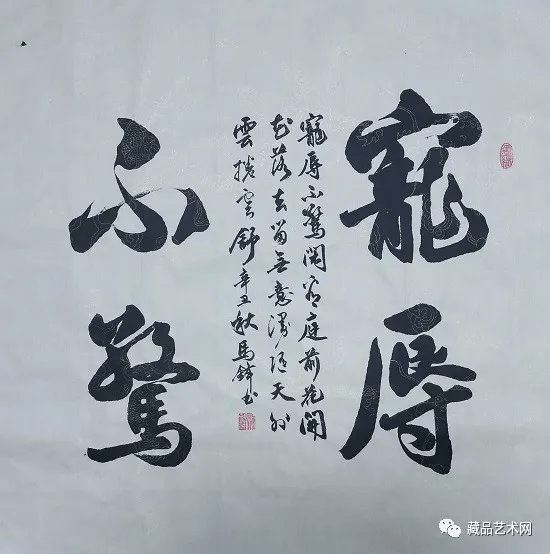 寵辱
寵辱不驚閑看庭前花開
花落去留無意漫隨天外
雲捲雲舒辛丑秋馬鋒书
不驚
藏品艺术网